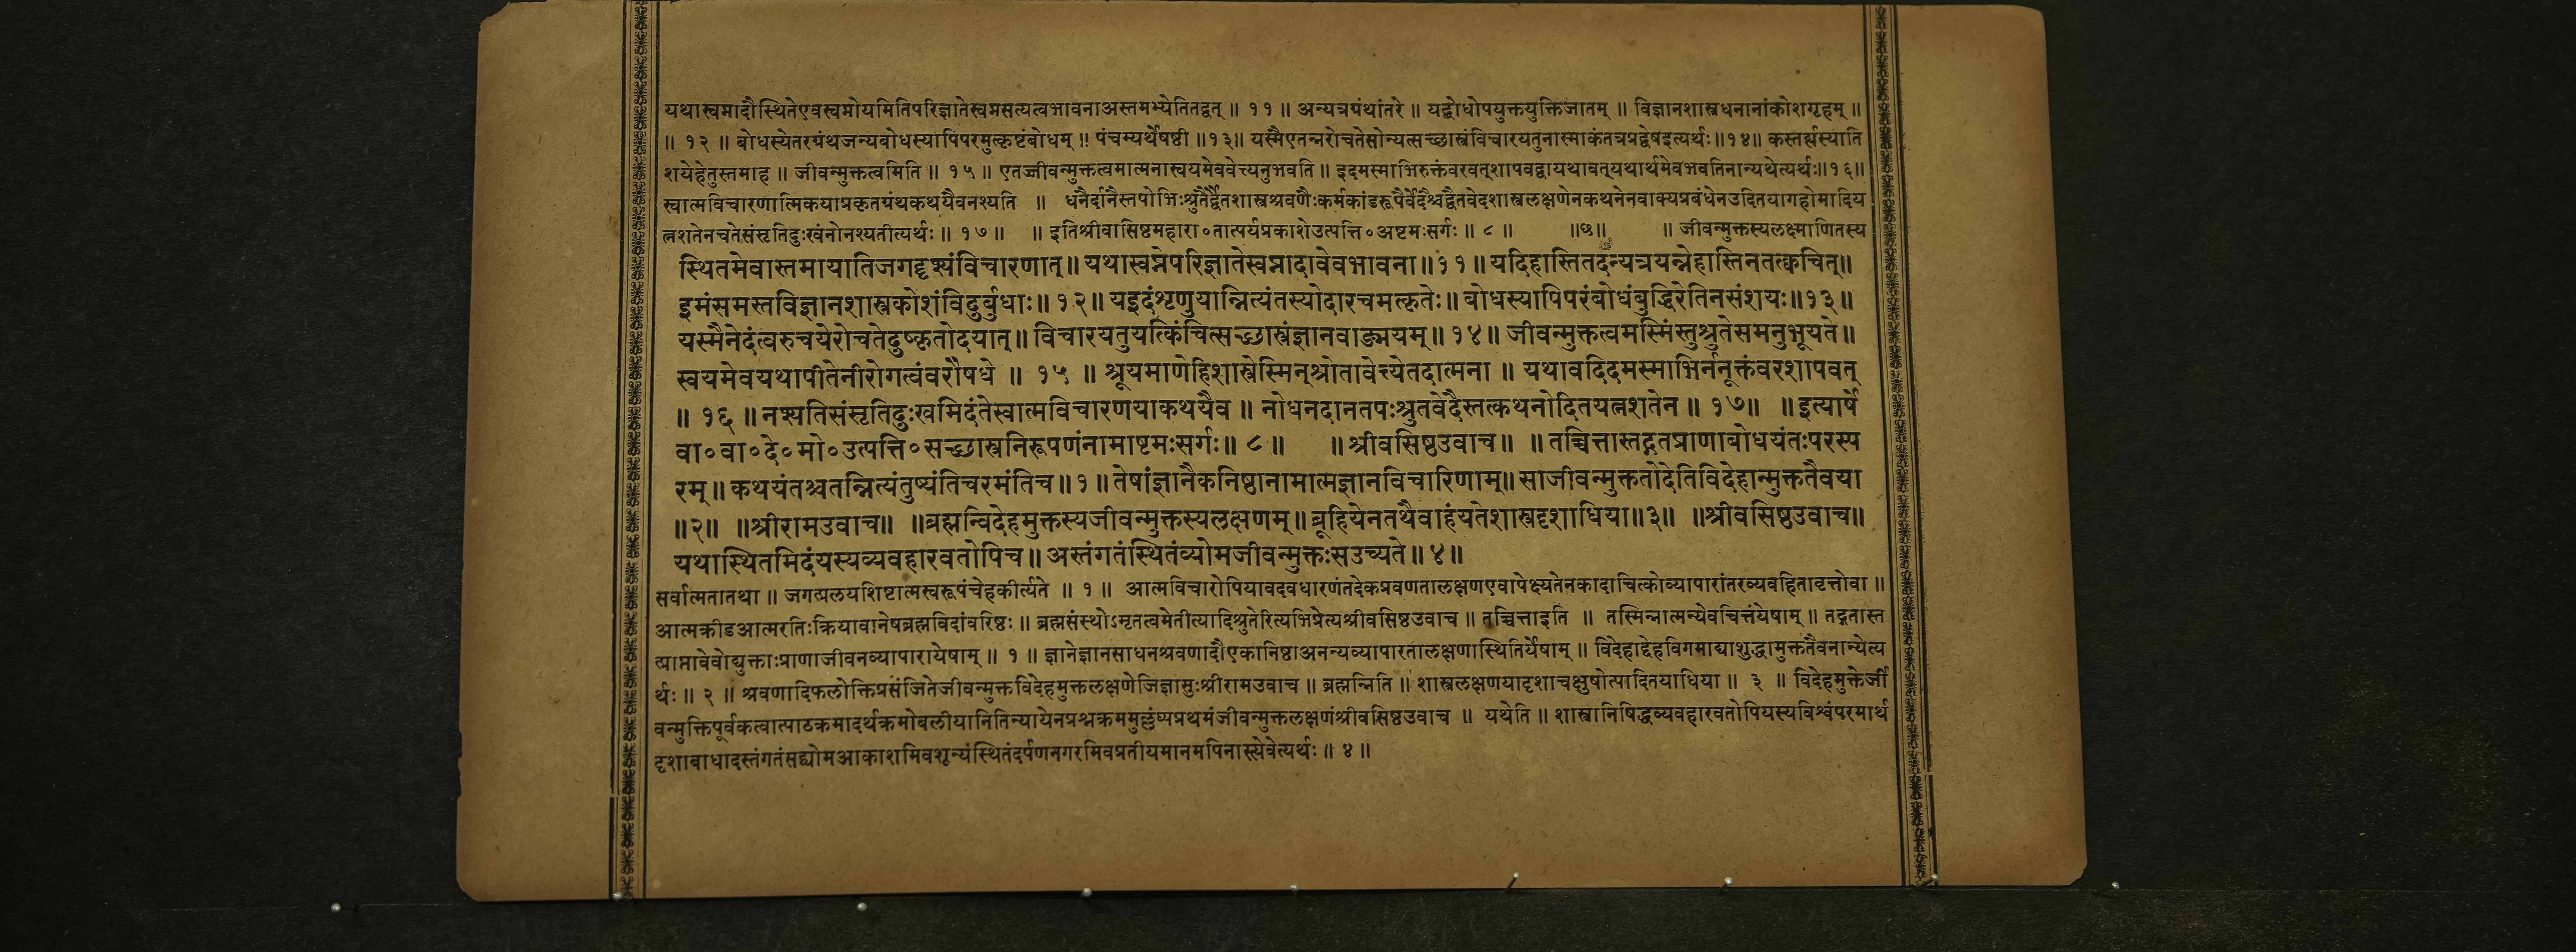 यथास्वप्नादौस्थितेएवस्वप्नोयमितिपरिज्ञातेस्वप्नसत्यत्वभावनाअस्तमभ्येतितद्वत् ॥ ११ ॥ अन्यत्रग्रंथांतरे ॥ यद्बोधोपयुक्तयुक्तिजातम् ॥ विज्ञानशास्त्रधनानांकोशगृहम् ॥
॥ १२ ॥ बोधस्येतरग्रंथजन्यबोधस्यापिपरमुत्कृष्टंबोधम् ॥ पंचम्यर्थेषष्ठी ॥१३॥ यस्मैएतन्नरोचतेसोन्यत्सच्छास्त्रंविचारयतुनास्माकंतत्रप्रद्वेषइत्यर्थः ॥१४॥ कस्तर्ह्यस्याति
शयेहेतुस्तमाह ॥ जीवन्मुक्तत्वमिति ॥ १५ ॥ एतज्जीवन्मुक्तत्वमात्मनास्वयमेववेत्त्यनुभवति ॥ इदमस्माभिरुक्तंवरवत्शापवद्वायथावत्यथार्थमेवभवतिनान्यथेत्यर्थः॥१६॥
स्वात्मविचारणात्मिकयाप्रकृतग्रंथकथयैवनश्यति ॥ धनैर्दानैस्तपोभिःश्रुतैर्द्वैतशास्त्रश्रवणैःकर्मकांडरूपैर्वेदैश्चद्वैतवेदशास्त्रलक्षणेनकथनेनवाक्यप्रबंधेनउदितयागहोमादिय
त्नशतेनचतेसंसृतिदुःखंनोनश्यतीत्यर्थः ॥ १७ ॥ ॥ इतिश्रीवासिष्ठमहारा०तात्पर्यप्रकाशेउत्पत्ति०अष्टमःसर्गः ॥ ८ ॥ ॥७॥ ॥ जीवन्मुक्तस्यलक्ष्माणितस्य
स्थितमेवास्तमायातिजगद्दृश्यंविचारणात् ॥ यथास्वप्नेपरिज्ञातेस्वप्नादावेवभावना ॥ ११ ॥ यदिहास्तितदन्यत्रयन्नेहास्तिनतत्क्वचित् ॥
इमंसमस्तविज्ञानशास्त्रकोशंविदुर्बुधाः ॥ १२ ॥ यइदंशृणुयान्नित्यंतस्योदारचमत्कृतेः ॥ बोधस्यापिपरंबोधंबुद्धिरेतिनसंशयः ॥१३॥
यस्मैनेदंत्वरुचयेरोचतेदुष्कृतोदयात् ॥ विचारयतुयत्किंचित्सच्छास्त्रंज्ञानवाङ्मयम् ॥ १४ ॥ जीवन्मुक्तत्वमस्मिंस्तुश्रुतेसमनुभूयते ॥
स्वयमेवयथापीतेनीरोगत्वंवरौषधे ॥ १५ ॥ श्रूयमाणेहिशास्त्रेस्मिन्श्रोतावेत्त्येतदात्मना ॥ यथावदिदमस्माभिर्ननूक्तंवरशापवत्
॥ १६ ॥ नश्यतिसंसृतिदुःखमिदंतेस्वात्मविचारणयाकथयैव ॥ नोधनदानतपःश्रुतवेदैस्तत्कथनोदितयत्नशतेन ॥ १७ ॥ ॥ इत्यार्षे
वा०वा०दे०मो०उत्पत्ति०सच्छास्त्रनिरूपणंनामाष्टमःसर्गः ॥ ८ ॥ ॥ श्रीवसिष्ठउवाच ॥ ॥ तच्चित्तास्तद्गतप्राणाबोधयंतःपरस्प
रम् ॥ कथयंतश्चतन्नित्यंतुष्यंतिचरमंतिच ॥ १ ॥ तेषांज्ञानैकनिष्ठानामात्मज्ञानविचारिणाम् ॥ साजीवन्मुक्ततोदेतिविदेहान्मुक्ततैवया
॥२॥ ॥श्रीरामउवाच॥ ॥ब्रह्मन्विदेहमुक्तस्यजीवन्मुक्तस्यलक्षणम् ॥ ब्रूहियेनतथैवाहंयतेशास्त्रदृशाधिया ॥३॥ ॥श्रीवसिष्ठउवाच॥
यथास्थितमिदंयस्यव्यवहारवतोपिच ॥ अस्तंगतंस्थितंव्योमजीवन्मुक्तःसउच्यते ॥ ४ ॥
सर्वात्मतातथा ॥ जगत्प्रलयशिष्टात्मस्वरूपंचेहकीर्त्यते ॥ १ ॥ आत्मविचारोपियावदवधारणंतदेकप्रवणतालक्षणएवापेक्ष्यतेनकादाचित्कोव्यापारांतरव्यवहितावृत्तोवा ॥
आत्मक्रीडआत्मरतिःक्रियावानेषब्रह्मविदांवरिष्ठः ॥ ब्रह्मसंस्थोऽमृतत्वमेतीत्यादिश्रुतेरित्यभिप्रेत्यश्रीवसिष्ठउवाच ॥ तच्चित्ताइति ॥ तस्मिन्नात्मन्येवचित्तंयेषाम् ॥ तद्गतास्त
त्प्राप्तावेवोद्युक्ताःप्राणाजीवनव्यापारायेषाम् ॥ १ ॥ ज्ञानेज्ञानसाधनश्रवणादौएकानिष्ठाअनन्यव्यापारतालक्षणास्थितिर्येषाम् ॥ विदेहाद्देहविगमाद्याशुद्धामुक्ततैवनान्येत्य
र्थः ॥ २ ॥ श्रवणादिफलोक्तिप्रसंजितेजीवन्मुक्तविदेहमुक्तलक्षणेजिज्ञासुःश्रीरामउवाच ॥ ब्रह्मन्निति ॥ शास्त्रलक्षणयादृशाचक्षुषोत्पादितयाधिया ॥ ३ ॥ विदेहमुक्तेर्जी
वन्मुक्तिपूर्वकत्वात्पाठक्रमादर्थक्रमोबलीयानितिन्यायेनप्रश्नक्रममुल्लंघ्यप्रथमंजीवन्मुक्तलक्षणंश्रीवसिष्ठउवाच ॥ यथेति ॥ शास्त्रानिषिद्धव्यवहारवतोपियस्यविश्वंपरमार्थ
दृशाबाधादस्तंगतंसद्व्योमआकाशमिवशून्यंस्थितंदर्पणनगरमिवप्रतीयमानमपिनास्त्येवेत्यर्थः ॥ ४ ॥